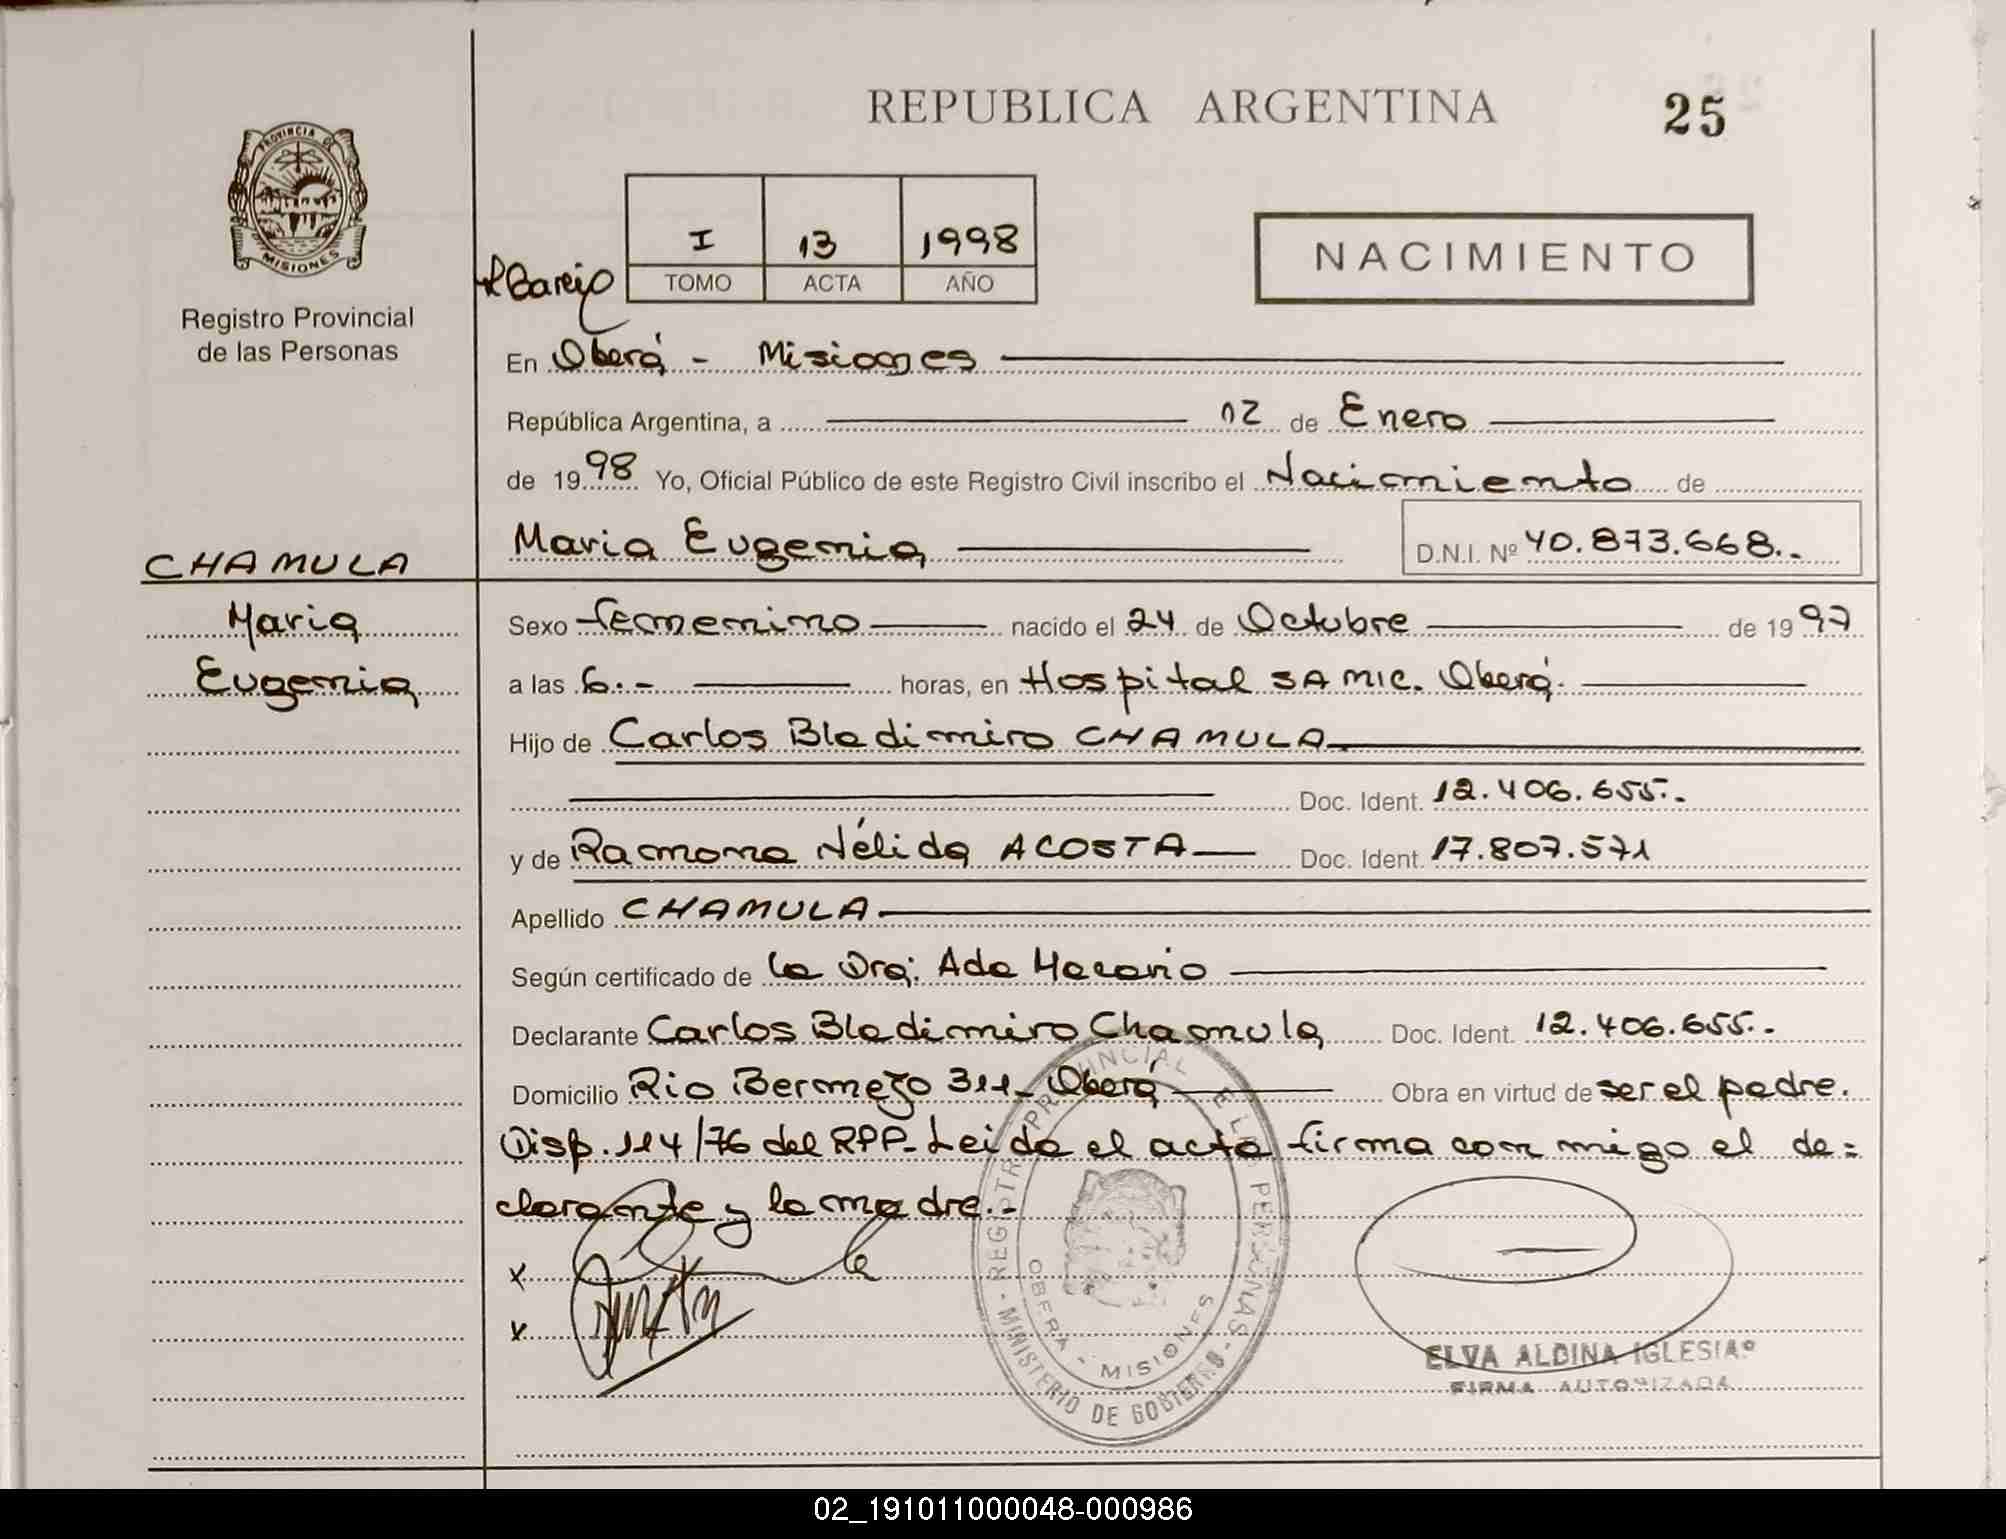 REPUBLICA ARGENTINA
25
PROVINCIA DE
MISIONES
Registro Provincial
de las Personas
I 13 1998
TOMO ACTA AÑO
NACIMIENTO
En Oberá - Misiones
República Argentina, a 02 de Enero
de 1998 Yo, Oficial Público de este Registro Civil inscribo el Nacimiento de
Maria Eugenia D.N.I. Nº 40.873.668.-
CHAMULA
Maria
Eugenia
Sexo femenino nacido el 24 de Octubre de 1997
a las 6.- horas, en Hospital SAMIC. Oberá.
Hijo de Carlos Bladimiro CHAMULA
Doc. Ident. 12.406.655.-
y de Ramona Nélida ACOSTA Doc. Ident. 17.807.571
Apellido CHAMULA
Según certificado de la Dra. Ada Macario
Declarante Carlos Bladimiro Chamula Doc. Ident. 12.406.655.-
Domicilio Rio Bermejo 311- Oberá Obra en virtud de ser el padre.
Disp. 114/76 del RPP- Leida el acta firma conmigo el de=
clarante y la madre.-
x
x
REGISTRO PROVINCIAL DE LAS PERSONAS - MINISTERIO DE GOBIERNO -
OBERÁ - MISIONES
ELVA ALDINA IGLESIAS
FIRMA AUTORIZADA
02_191011000048-000986